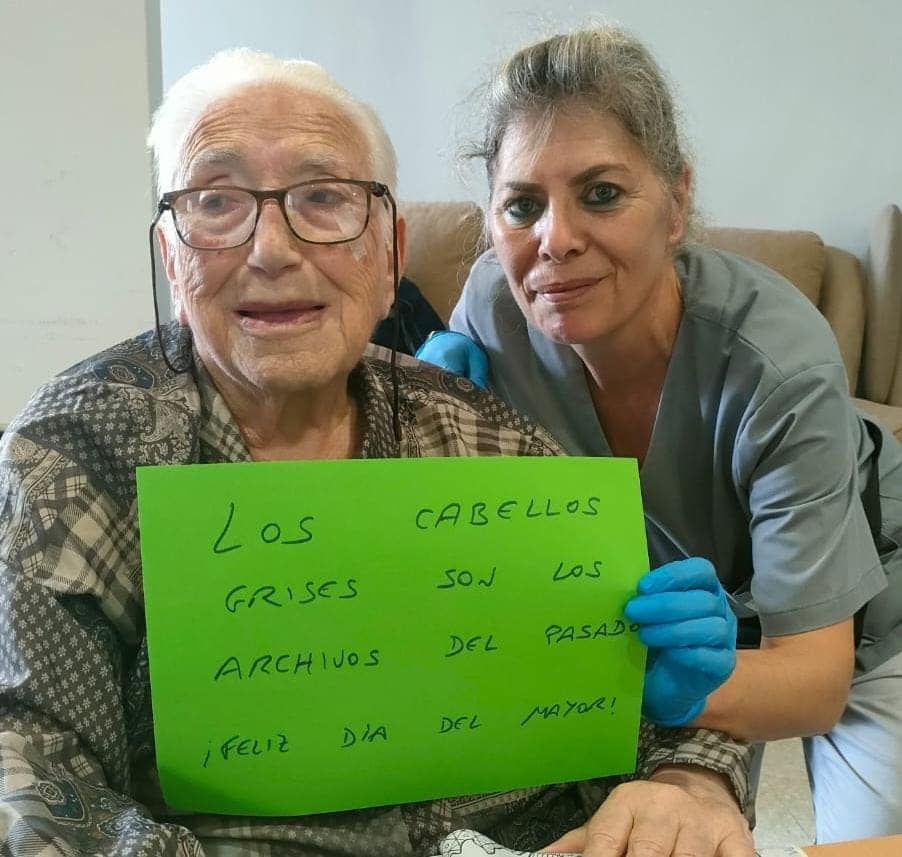 LOS CABELLOS
GRISES SON LOS
ARCHIVOS DEL PASADO
¡FELIZ DÍA DEL MAYOR!